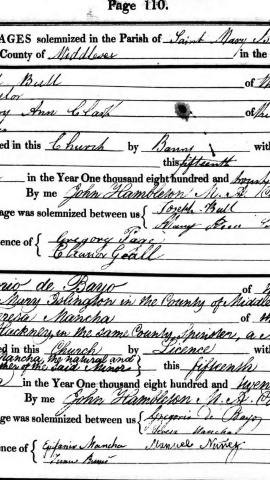 Page 110.
AGES solemnized in the Parish of Saint Mary
County of Middlesex in the
Bull of
lor
y Ann Clark of
ed in this Church by Banns with
this fifteenth
in the Year One thousand eight hundred and twenty
By me John Hambleton M. A.
age was solemnized between us { Joseph Bull
Mary
ence of { Gregory Page
Eleanor Goall
orio de Bayo of
Mary Islington in the County of Middle
resa Mancha of
Hackney in the same County, Spinster, a M
ed in this Church by Licence with
Mancha, the natural and
ther of the said Minor } this fifteenth
in the Year One thousand eight hundred and twen
By me John Hambleton M. A.
age was solemnized between us { Gregorio de Bayo
Teresa Mancha
ence of { Epifanio Mancha Manuel Nuñez
Juan